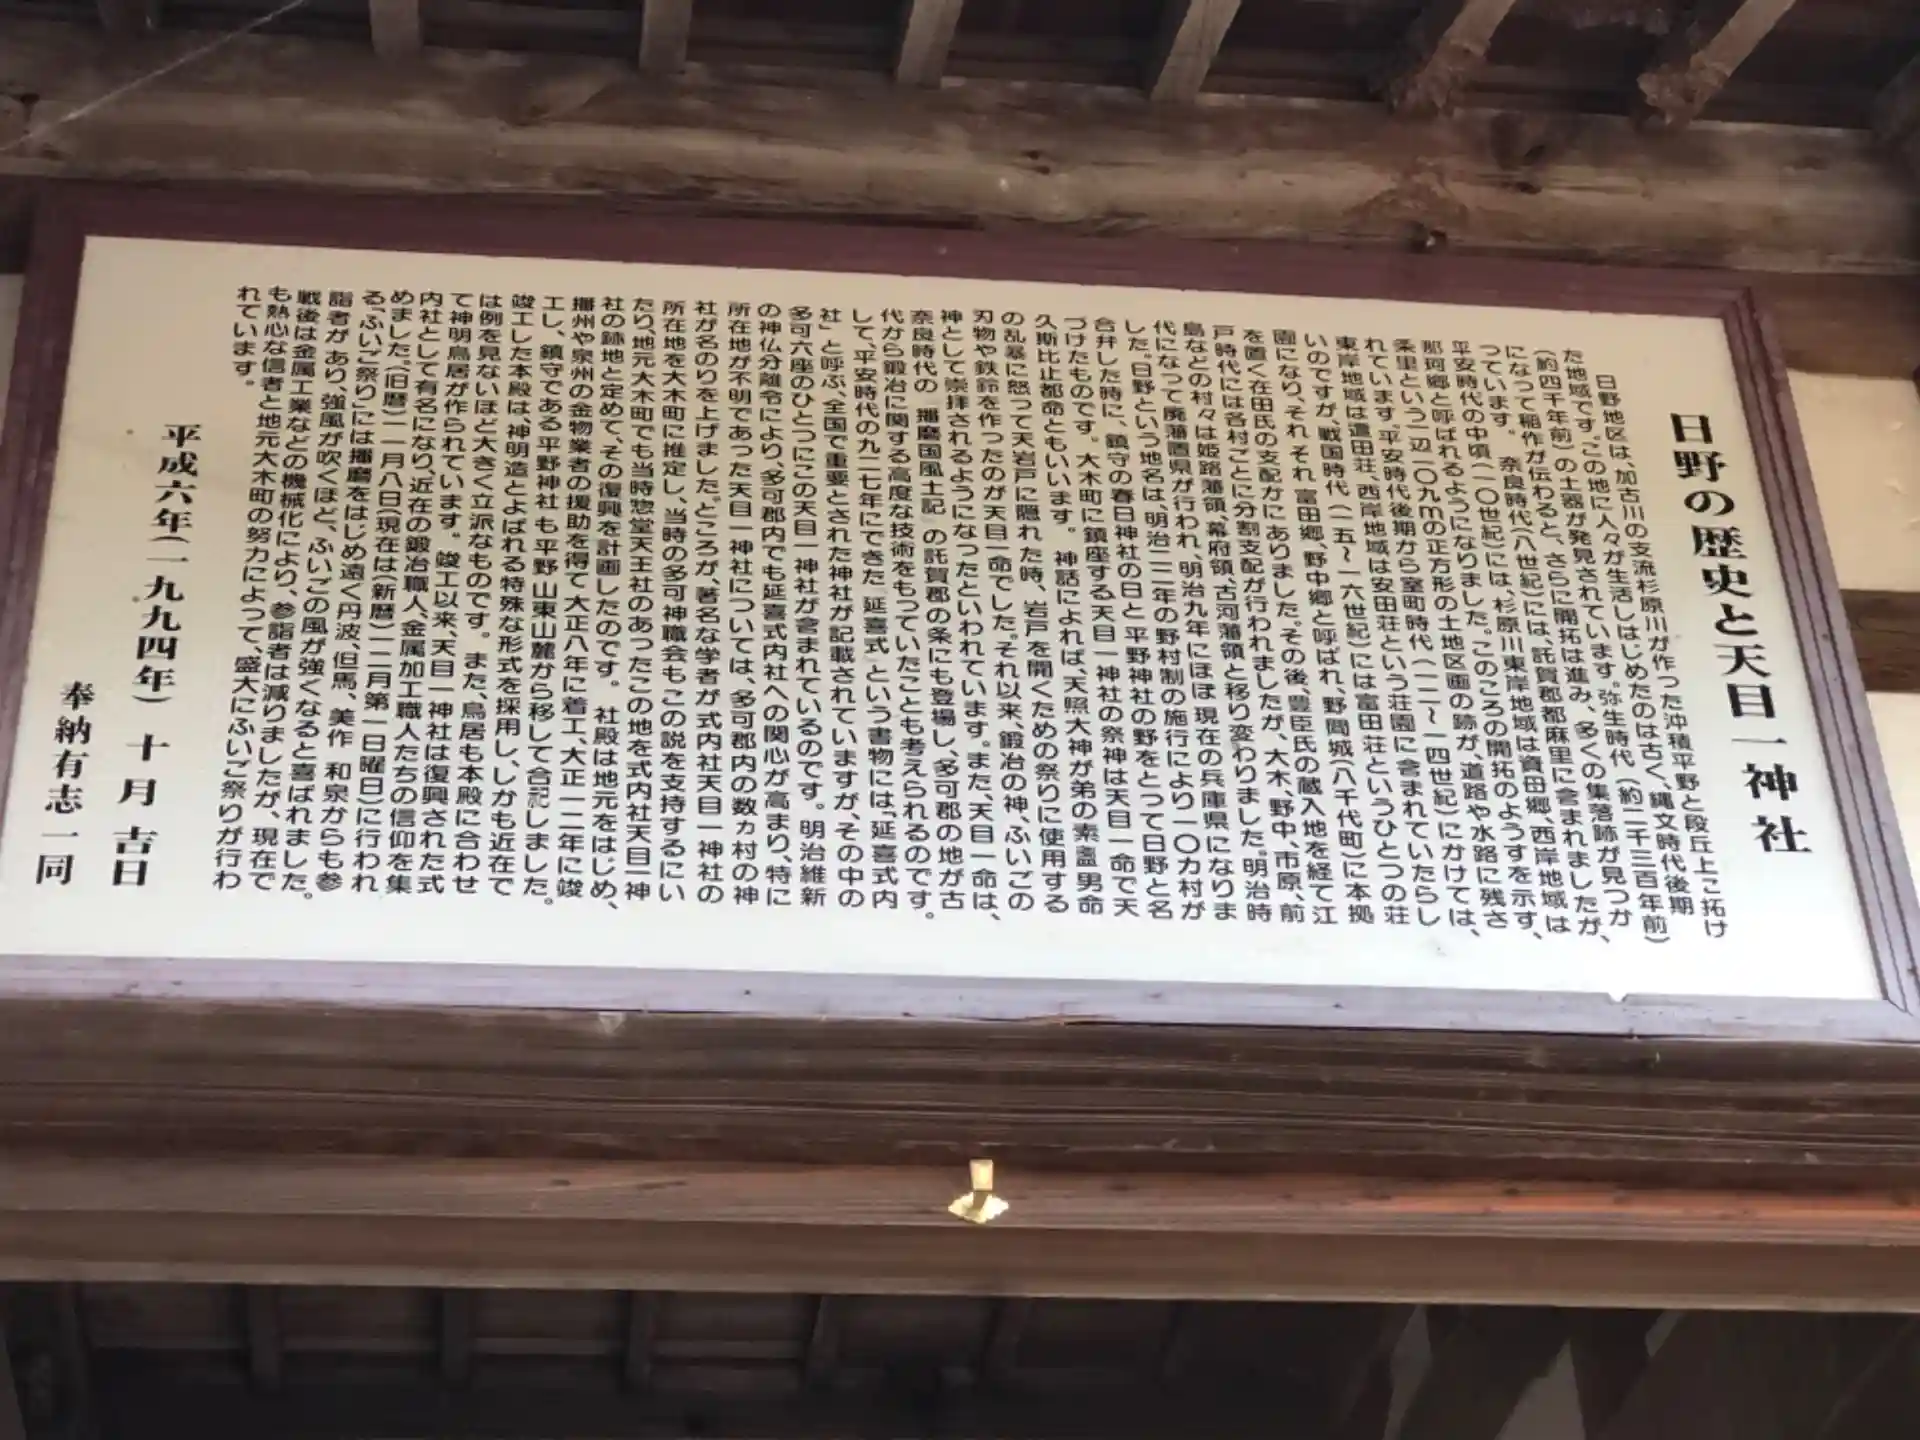 日野の歴史と天目一神社
日野地区は、加古川の支流杉原川が作った沖積平野と段丘上に拓け
た地域です。この地に人々が生活しはじめたのは古く、縄文時代後期
(約四千年前)の土器が発見されています。弥生時代(約二千三百年前)
になって稲作が伝わると、さらに開拓は進み、多くの集落跡が見つか
っています。奈良時代(八世紀)には、託賀郡都麻里に含まれましたが、
平安時代の中頃(一〇世紀)には、杉原川東岸地域は資母郷、西岸地域は
那珂郷と呼ばれるようになりました。このころの開拓のようすを示す、
条里という一辺一〇九mの正方形の土地区画の跡が、道路や水路に残さ
れています。平安時代後期から室町時代(一二～一四世紀)にかけては、
東岸地域は這田荘、西岸地域は安田荘という荘園に含まれていたらし
いのですが、戦国時代(一五～一六世紀)には富田荘というひとつの荘
園になり、それぞれ富田郷、野中郷と呼ばれ、野間城(八千代町)に本拠
を置く在田氏の支配下にありました。その後、豊臣氏の蔵入地を経て江
戸時代には各村ごとに分割支配が行われましたが、大木、野中、市原、前
島などの村々は姫路藩領、幕府領、古河藩領と移り変わりました。明治時
代になって廃藩置県が行われ、明治九年にほぼ現在の兵庫県になりま
した。日野という地名は、明治二二年の野村制の施行により一〇カ村が
合弁した時に、鎮守の春日神社の日と平野神社の野をとって日野と名
づけたものです。大木町に鎮座する天目一神社の祭神は天目一命で天
久斯比止都命ともいいます。神話によれば、天照大神が弟の素盞男命
の乱暴に怒って天岩戸に隠れた時、岩戸を開くための祭りに使用する
刃物や鉄鈴を作ったのが天目一命でした。それ以来、鍛冶の神、ふいごの
神として崇拝されるようになったといわれています。また、天目一命は、
奈良時代の『播磨国風土記』の託賀郡の条にも登場し、多可郡の地が古
代から鍛冶に関する高度な技術をもっていたことも考えられるのです。
して、平安時代の九二七年にできた『延喜式』という書物には、「延喜式内
社」と呼ぶ、全国で重要とされた神社が記載されていますが、その中の
多可六座のひとつにこの天目一神社が含まれているのです。明治維新
の神仏分離令により、多可郡内でも延喜式内社への関心が高まり、特に
所在地が不明であった天目一神社については、多可郡内の数ヵ村の神
社が名のりを上げました。ところが、著名な学者が式内社天目一神社の
所在地を大木町に推定し、当時の多可神職会もこの説を支持するにい
たり、地元大木町でも当時惣堂天王社のあったこの地を式内社天目一神
社の跡地と定めて、その復興を計画したのです。社殿は地元をはじめ、
播州や泉州の金物業者の援助を得て大正八年に着工、大正一二年に竣
工し、鎮守である平野神社も平野山東山麓から移して合祀しました。
竣工した本殿は神明造とよばれる特殊な形式を採用し、しかも近在で
は例を見ないほど大きく立派なものです。また、鳥居も本殿に合わせ
て神明鳥居が作られています。竣工以来、天目一神社は復興された式
内社として有名になり、近在の鍛冶職人、金属加工職人たちの信仰を集
めました。(旧暦)一一月八日(現在は(新暦)一二月第一日曜日)に行われ
る「ふいご祭り」には播磨をはじめ遠く丹波、但馬、美作、和泉からも参
詣者があり、強風が吹くほど、ふいごの風が強くなると喜ばれました。
戦後は金属工業などの機械化により、参詣者は減りましたが、現在で
も熱心な信者と地元大木町の努力によって、盛大にふいご祭りが行わ
れています。
平成六年(一九九四年)十月吉日
奉納有志一同